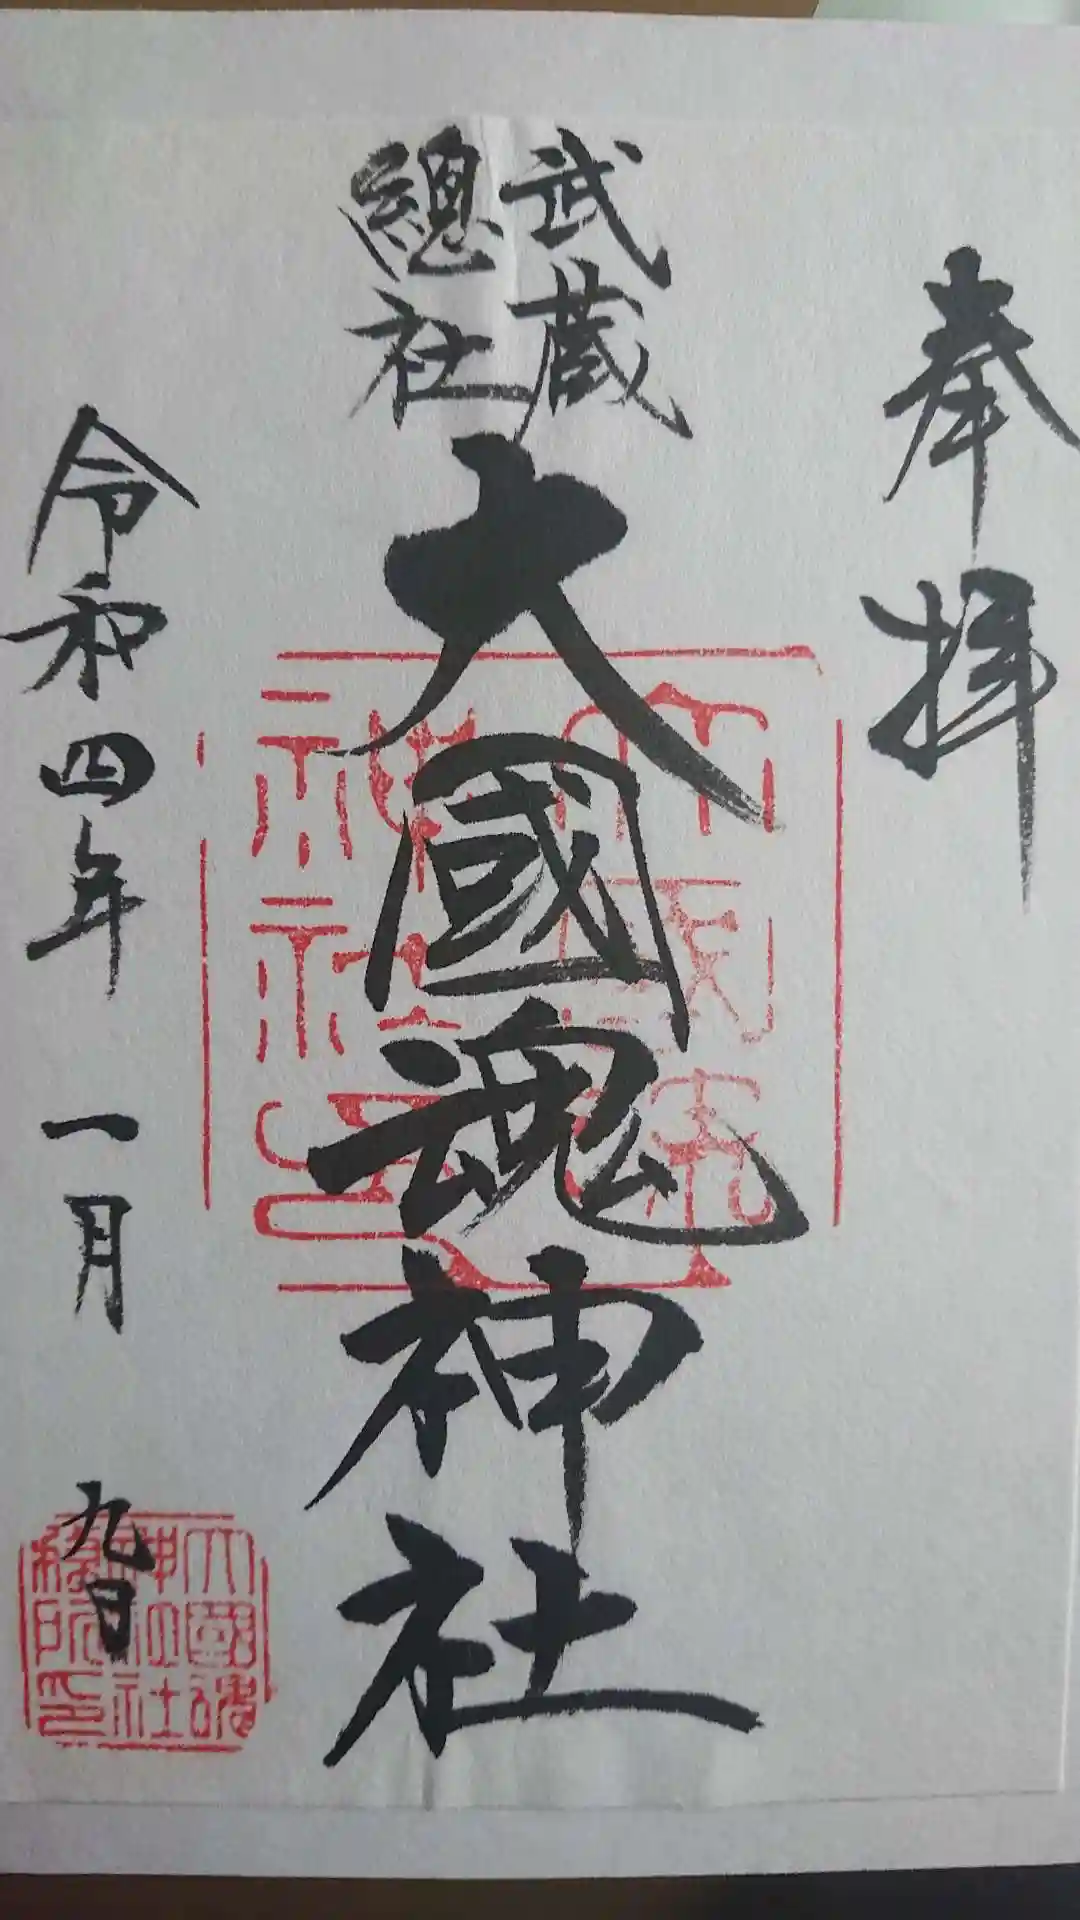 奉拝
武蔵
總社
大國魂神社
令和四年 一月 九日
大國魂
神社
務所印